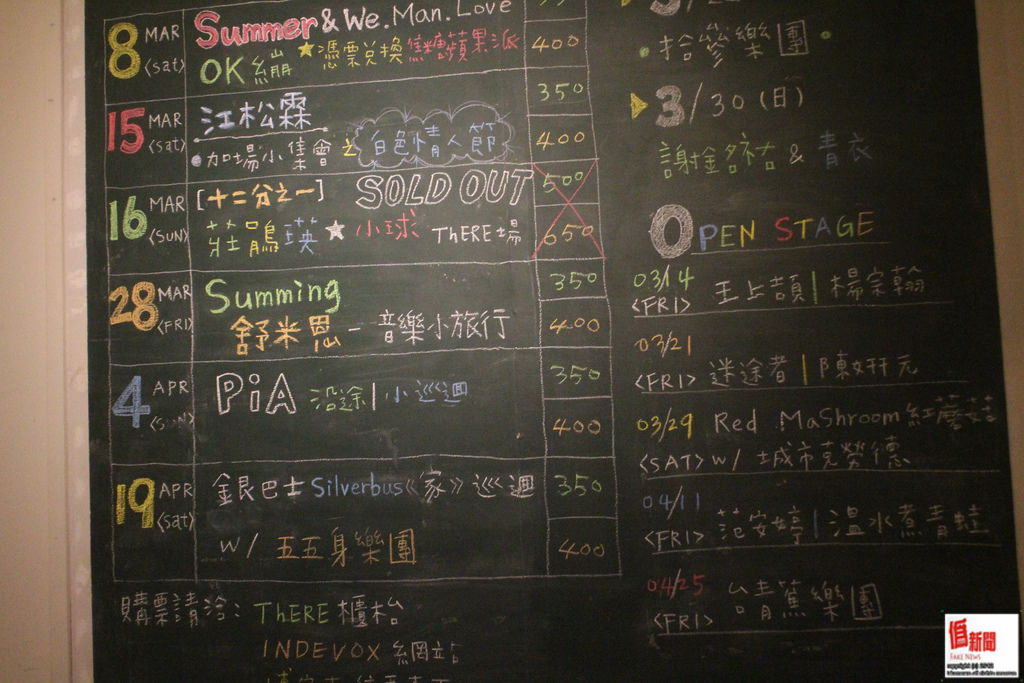 8 MAR (sat) Summer & We.Man.Love
OK繃 ★憑票兌換焦糖蘋果派 400
15 MAR (sat) 江松霖 350
•加場小集會 之 白色情人節 400
16 MAR (SUN) [十二分之一] SOLD OUT 500
莊鵑瑛 ★ 小球 ThERE場 650
28 MAR (FRI) Summing 350
舒米恩 - 音樂小旅行 400
4 APR PiA 沿途 | 小巡迴 350
400
19 APR (sat) 銀巴士 Silverbus《家》巡迴 350
w/ 五五身樂團 400
購票請洽: ThERE 櫃枱
INDEVOX 網站
•拾參樂團•
3/30 (日)
謝銘祐 & 青衣
OPEN STAGE
03/14
<FRI> 王上頡 | 楊宗翰
03/21
<FRI> 迷途者 | 陳姸元
03/29 Red MaShroom 紅蘑菇
<SAT> w/ 城市克勞德
04/11
<FRI> 范安婷 | 溫水煮青蛙
04/25
<FRI> 台青蕉樂團
值新聞
FAKE NEWS